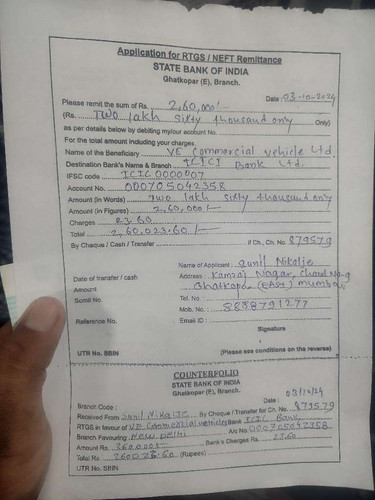 Application for RTGS / NEFT Remittance
STATE BANK OF INDIA
Ghatkopar (E), Branch.
Date : 03-10-2024
Please remit the sum of Rs. 2,60,000/-
(Rs. Two lakh sixty thousand only Only)
as per details below by debiting my/our account No.
For the total amount including your charges.
Name of the Beneficiary VE Commercial vehicle Ltd.
Destination Bank's Name & Branch ICICI Bank Ltd.
IFSC code ICIC0000007
Account No. 000705042358
Amount (in Words) Two lakh sixty thousand only
Amount (in Figures) 2,60,000/-
Charges 23.60
Total 2,60,023.60/-
By Chaque / Cash / Transfer If Ch., Ch. No. 879579
Name of Applicant : Sunil Nikalje
Date of transfer / cash Address : Kamraj Nagar, Chawl No-9
Amount Ghatkopar (East) mumbai
Somil No. Tel. No. :
Mob. No. : 8888791277
Reference No. Email ID :
Signature
UTR No. SBIN (Please see conditions on the reverse)
COUNTERFOLIO
STATE BANK OF INDIA
Ghatkopar (E), Branch.
Branch Code : Date : 03/10/24
Received From Sunil Nikalje By Chaque / Transfer for Ch. No. 879579
RTGS in favour of VE Commercial vehicles Bank ICICI Bank
Branch Favouring New Delhi A/c No. 000705042358
Amount Rs. 260000/- Bank's Charges Rs. 23.60
Total Rs. 260023.60 (Rupees)
UTR No. SBIN